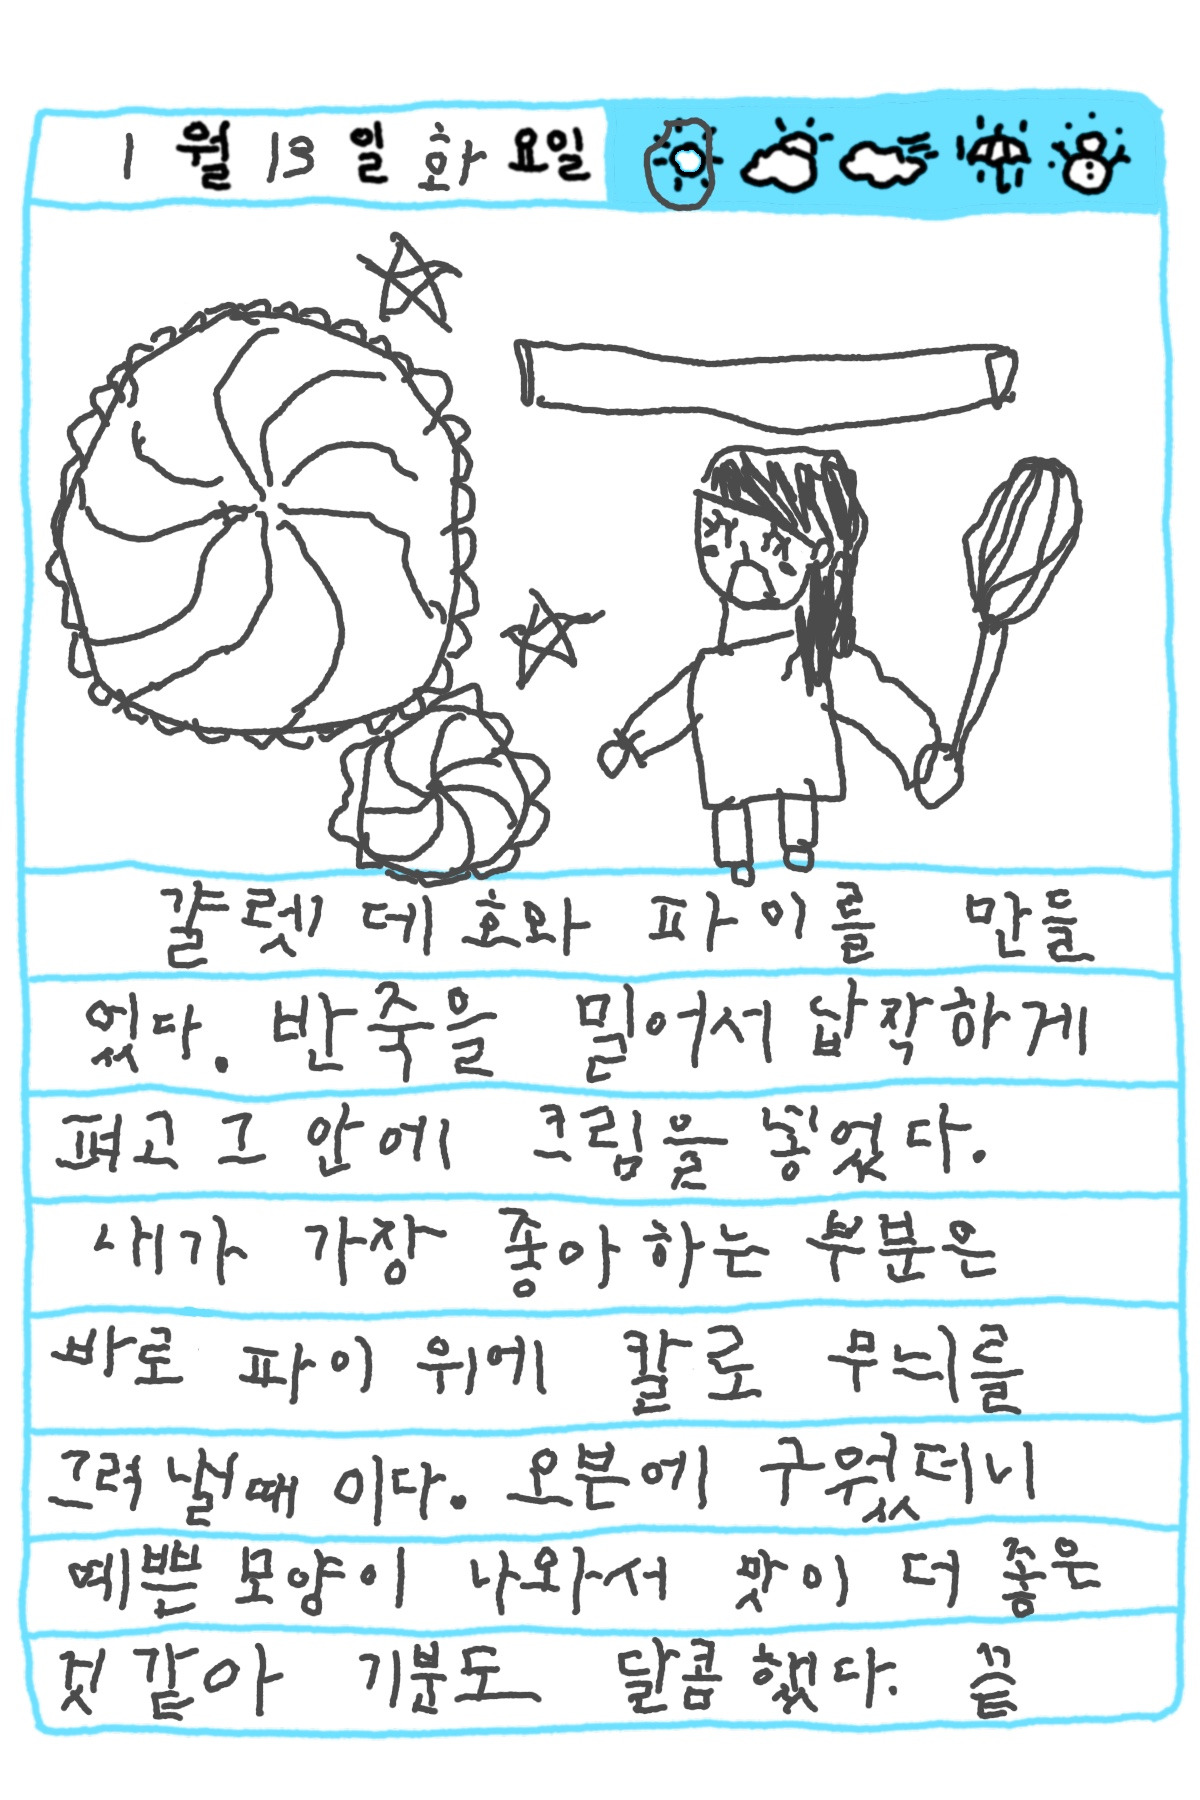 1월 13일 화요일
갈렛 데 호와 파이를 만들
었다. 반죽을 밀어서 납작하게
펴고 그 안에 크림을 넣었다.
내가 가장 좋아하는 부분은
바로 파이 위에 칼로 무늬를
그려 낼때 이다. 오븐에 구웠더니
예쁜 모양이 나와서 맛이 더 좋은
것 같아 기분도 달콤했다. 끝